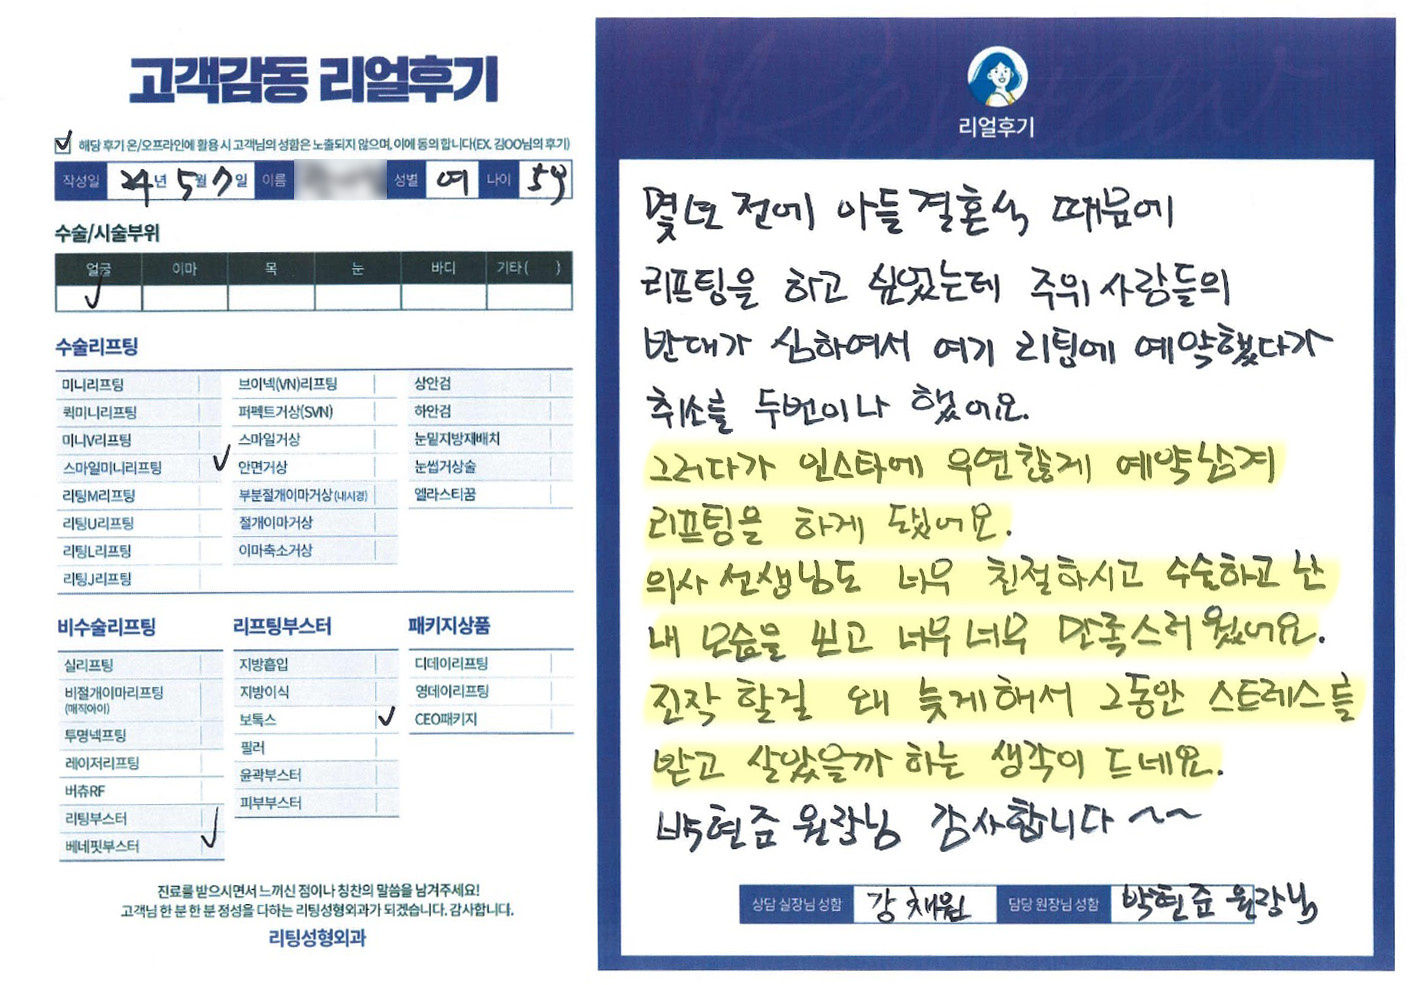 고객감동 리얼후기
해당 후기 온/오프라인에 활용 시 고객님의 성함은 노출되지 않으며, 이에 동의 합니다(EX. 김OO님의 후기)
작성일 24년 5월 7일 이름 성별 여 나이 59
수술/시술부위
얼굴 이마 목 눈 바디 기타 ( )
수술리프팅
미니리프팅 브이넥(VN)리프팅 상안검
퀵미니리프팅 퍼펙트거상(SVN) 하안검
미니V리프팅 스마일거상 눈밑지방재배치
스마일미니리프팅 안면거상 눈썹거상술
리팅M리프팅 부분절개이마거상(내시경) 엘라스티꿈
리팅U리프팅 절개이마거상
리팅L리프팅 이마축소거상
리팅J리프팅
비수술리프팅 리프팅부스터 패키지상품
실리프팅 지방흡입 디데이리프팅
비절개이마리프팅 지방이식 영데이리프팅
(매직아이) 보톡스 CEO패키지
투명넥프팅 필러
레이저리프팅 윤곽부스터
버츄RF 피부부스터
리팅부스터
베네핏부스터
진료를 받으시면서 느끼신 점이나 칭찬의 말씀을 남겨주세요!
고객님 한 분 한 분 정성을 다하는 리팅성형외과가 되겠습니다. 감사합니다.
리팅성형외과
리얼후기
몇년 전에 아들결혼식 때문에
리프팅을 하고 싶었는데 주위 사람들의
반대가 심하여서 여기 리팅에 예약했다가
취소를 두번이나 했어요.
그러다가 인스타에 우연찮게 예약남겨
리프팅을 하게 됐어요.
의사 선생님도 너무 친절하시고 수술하고 난
내 모습을 보고 너무 너무 만족스러웠어요.
진작 할걸 왜 늦게해서 그동안 스트레스를
받고 살았을까 하는 생각이 드네요.
박현준 원장님 감사합니다~~
상담 실장님 성함 강채원 담당 원장님 성함 박현준 원장님